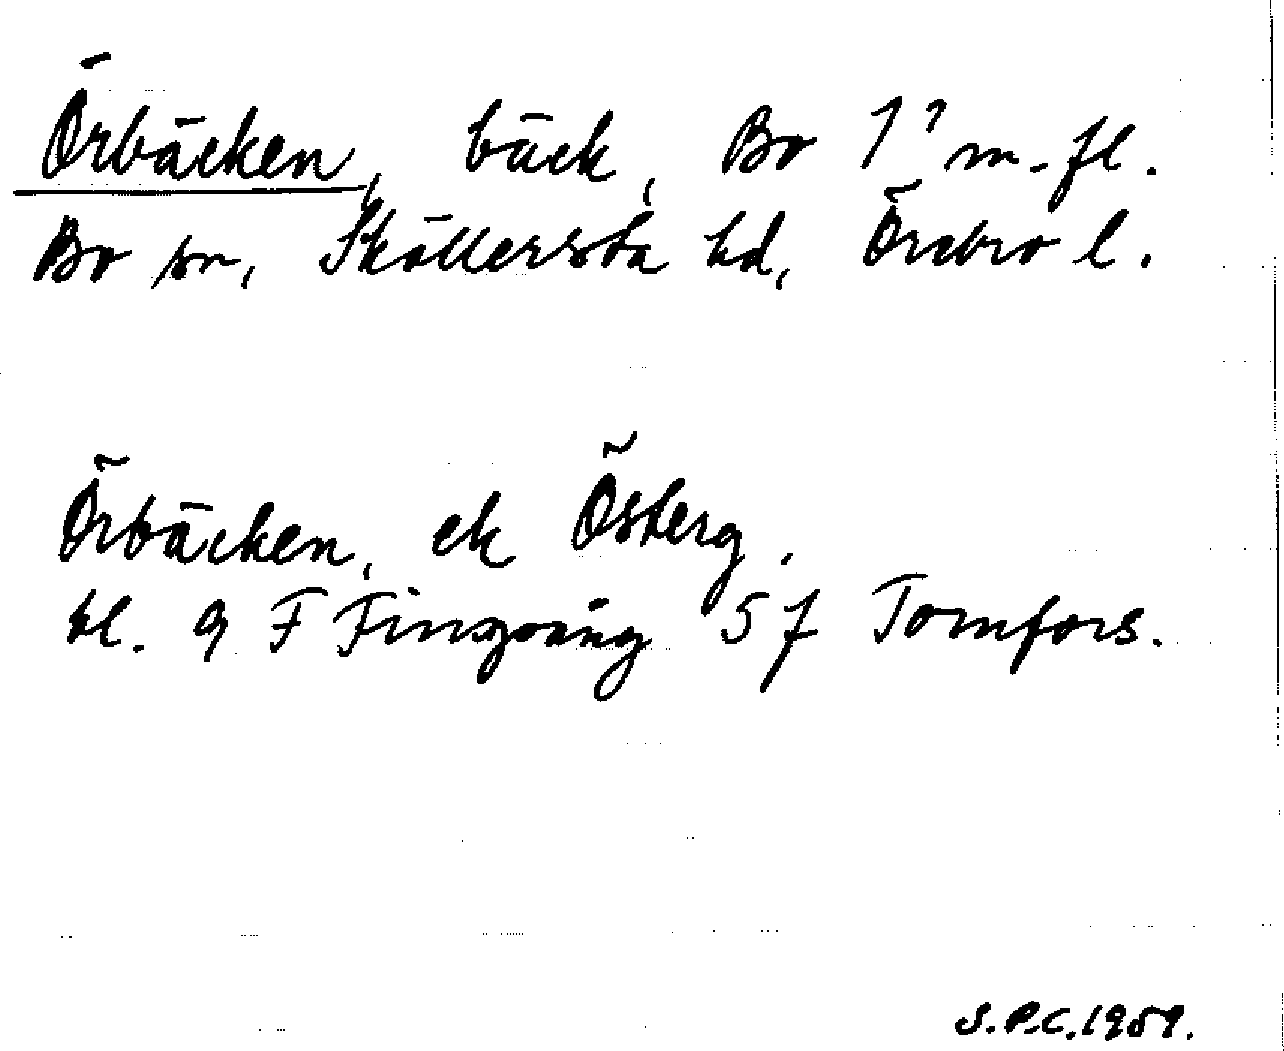 Örbäcken, bäck, Bo 1? m. fl.
Bo sn, Sköllersta hd, Örebro l.
Örbäcken, ek Österg.
bl. 9 F Finspång 5 f Tomfors.
S.P.C. 1959.